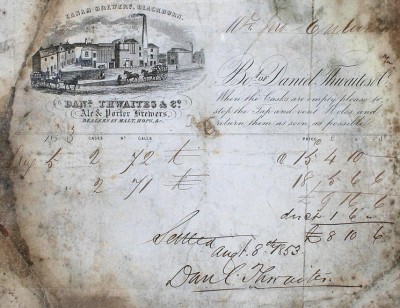 EANAM BREWERY, BLACKBURN.
Mr
DANL. THWAITES & CO.
Ale & Porter Brewers,
DEALERS IN MALT, HOPS, &c.
Bot of Daniel Thwaites & Co.
When the Casks are empty please to
stop the Tap and vent Holes and
return them as soon as possible.
CASKS Nº GALLS PRICE £ S D
5 2 72 15 4 10
2 71 18 5 6 6
9 16 6
1 6
£ 8 10 6
Settled
Augt. 8th 1853
Danl Thwaites